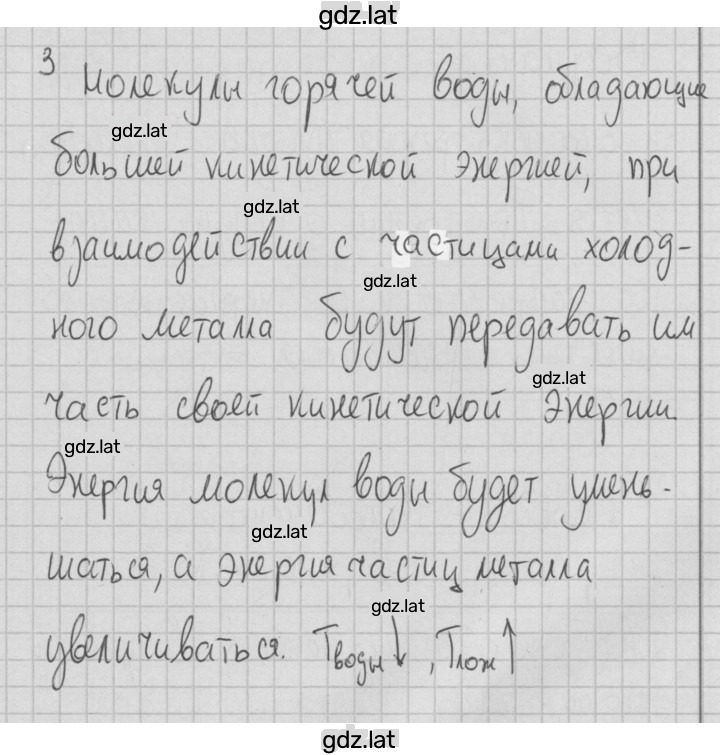 gdz.lat
3
Молекулы горячей воды, обладающие
gdz.lat
большей кинетической энергией, при
gdz.lat
взаимодействии с частицами холод-
gdz.lat
ного метала будут передавать им
gdz.lat
часть своей кинетической энергии.
gdz.lat
Энергия молекул воды будет умень-
gdz.lat
шаться, а энергия частиц металла
gdz.lat
увеличиваться. Tводы↓, Tлож↑
gdz.lat